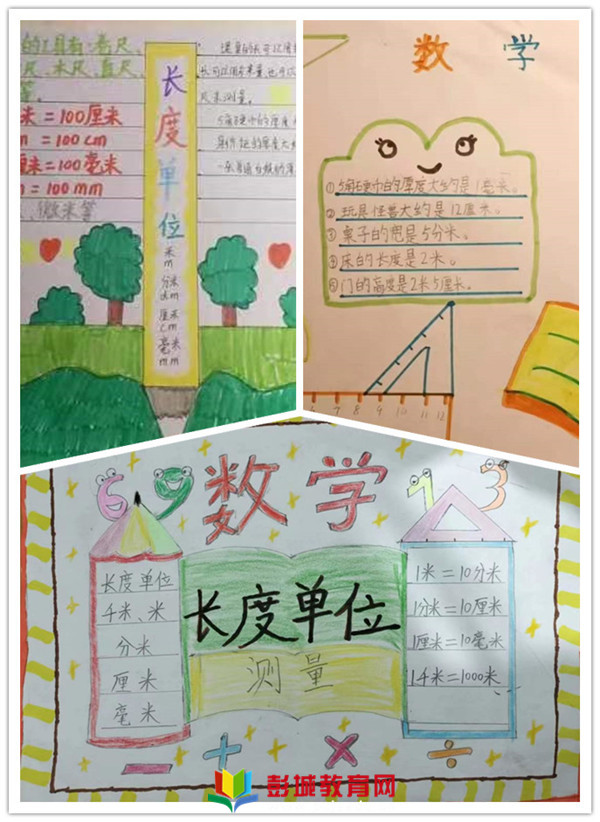 的工具有:卷尺、
尺、木尺、直尺、
等。
米=100厘米
m=100cm
厘米=100毫米
m=100mm
、微米等
长度单位
米
m
分米
dm
厘米
cm
毫米
mm
尺来测量。
5角硬币的厚度
数学
①5角硬币的厚度大约是1毫米。
②玩具怪兽大约是12厘米。
③桌子的宽是5分米。
④床的长度是2米。
⑤门的高度是2米5厘米。
6 7 8 9 10 11 12
69 数学 73
长度单位
千米、米
分米
厘米
毫米
长度单位
测量
1米=10分米
1分米=10厘米
1厘米=10毫米
1千米=1000米
- + × ÷
彭城教育网